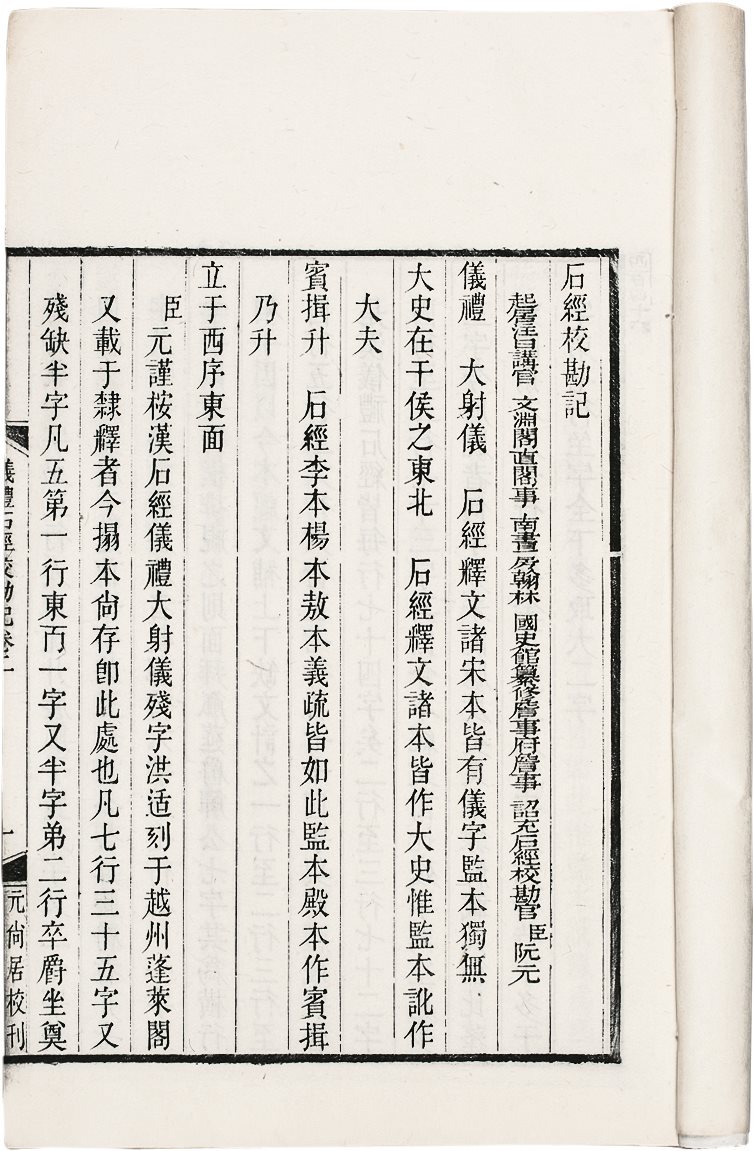 石經校勘記
起居注日講官 文淵閣直閣事 南書房翰林 國史館纂修詹事府詹事 詔充石經校勘官臣阮元
儀禮 大射儀 石經釋文諸宋本皆有儀字監本獨無
大史在干侯之東北 石經釋文諸本皆作大史惟監本訛作
大夫
賓揖升 石經李本楊本敖本義疏皆如此監本殿本作賓揖
乃升
立于西序東面
臣元謹桉漢石經儀禮大射儀殘字洪适刻于越州蓬萊閣
又載于隸釋者今搨本尙存卽此處也凡七行三十五字又
殘缺半字凡五第一行東面一字又半字弟二行卒爵坐奠
儀禮石經校勘記卷二
一
元尙居校刊